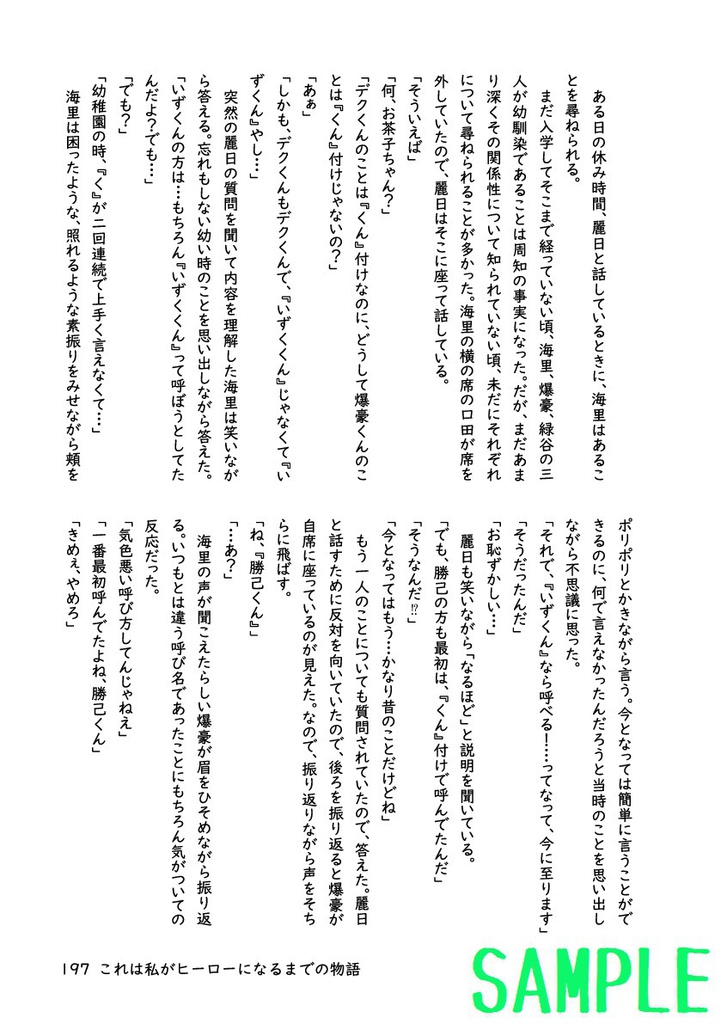 ある日の休み時間、麗日と話しているときに、海里はあるこ
とを尋ねられる。
まだ入学してそこまで経っていない頃、海里、爆豪、緑谷の三
人が幼馴染であることは周知の事実になった。だが、まだあま
り深くその関係性について知られていない頃、未だにそれぞれ
について尋ねられることが多かった。海里の横の席の口田が席を
外していたので、麗日はそこに座って話している。
「そういえば」
「何、お茶子ちゃん?」
「デクくんのことは『くん』付けなのに、どうして爆豪くんのこ
とは『くん』付けじゃないの?」
「あぁ」
「しかも、デクくんもデクくんで、『いずくくん』じゃなくて『い
ずくん』やし…」
突然の麗日の質問を聞いて内容を理解した海里は笑いなが
ら答える。忘れもしない幼い時のことを思い出しながら答えた。
「いずくんの方は…もちろん『いずくくん』って呼ぼうとしてた
んだよ?でも…」
「でも?」
「幼稚園の時、『く』が二回連続で上手く言えなくて…」
海里は困ったような、照れるような素振りをみせながら頬を
ポリポリとかきながら言う。今となっては簡単に言うことがで
きるのに、何で言えなかったんだろうと当時のことを思い出し
ながら不思議に思った。
「それで、『いずくん』なら呼べる!…ってなって、今に至ります」
「そうだったんだ」
「お恥ずかしい…」
麗日も笑いながら「なるほど」と説明を聞いている。
「でも、勝己の方も最初は、『くん』付けで呼んでたんだ」
「そうなんだ⁉」
「今となってはもう…かなり昔のことだけどね」
もう一人のことについても質問されていたので、答えた。麗日
と話すために反対を向いていたので、後ろを振り返ると爆豪が
自席に座っているのが見えた。なので、振り返りながら声をそち
らに飛ばす。
「ね、『勝己くん』」
「…あ?」
海里の声が聞こえたらしい爆豪が眉をひそめながら振り返
る。いつもとは違う呼び名であったことにもちろん気がついての
反応だった。
「気色悪い呼び方してんじゃねえ」
「一番最初呼んでたよね、勝己くん」
「きめぇ、やめろ」
197 これは私がヒーローになるまでの物語
SAMPLE